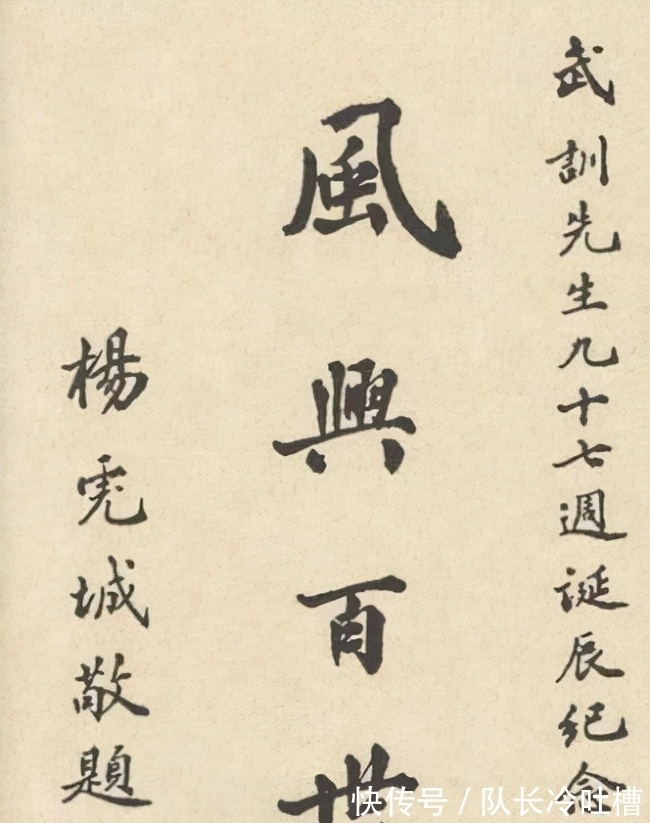 武訓先生九十七週誕辰紀念
風興百世
楊虎城敬題
快传号/队长冷吐槽